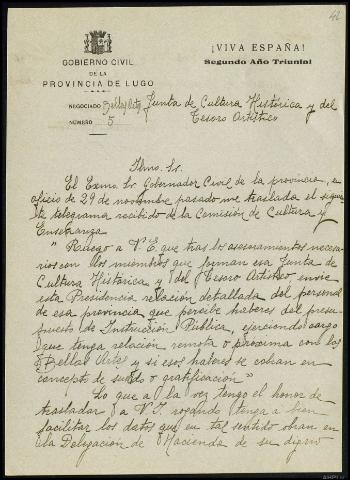 41
GOBIERNO CIVIL
DE LA
PROVINCIA DE LUGO
¡VIVA ESPAÑA!
Segundo Año Triunfal
NEGOCIADO Bellas Artes Junta de Cultura Histórica y del
NÚMERO 5 Tesoro Artístico
Ilmo. Sr.
El Excmo. Sr. Gobernador Civil de la provincia, en
oficio de 29 de noviembre pasado me traslada el siguien-
te telegrama recibido de la Comisión de Cultura y
Enseñanza
"Ruego a V.E. que tras los asesoramientos necesa-
rios con los miembros que forman esa Junta de
Cultura Histórica y del Tesoro Artístico envie
esta Presidencia relación detallada del personal
de esa provincia que percibe haberes del presu-
puesto de Instrucción Publica, ejerciendo cargo
que tenga relación remota o proxima con las
Bellas Artes y si esos haberes se cobran en
concepto de sueldo o gratificación"
Lo que a la vez tengo el honor de
trasladar a V.I. rogando tenga a bien
facilitar los datos que en tal sentido obran en
la Delegación de Hacienda de su digno